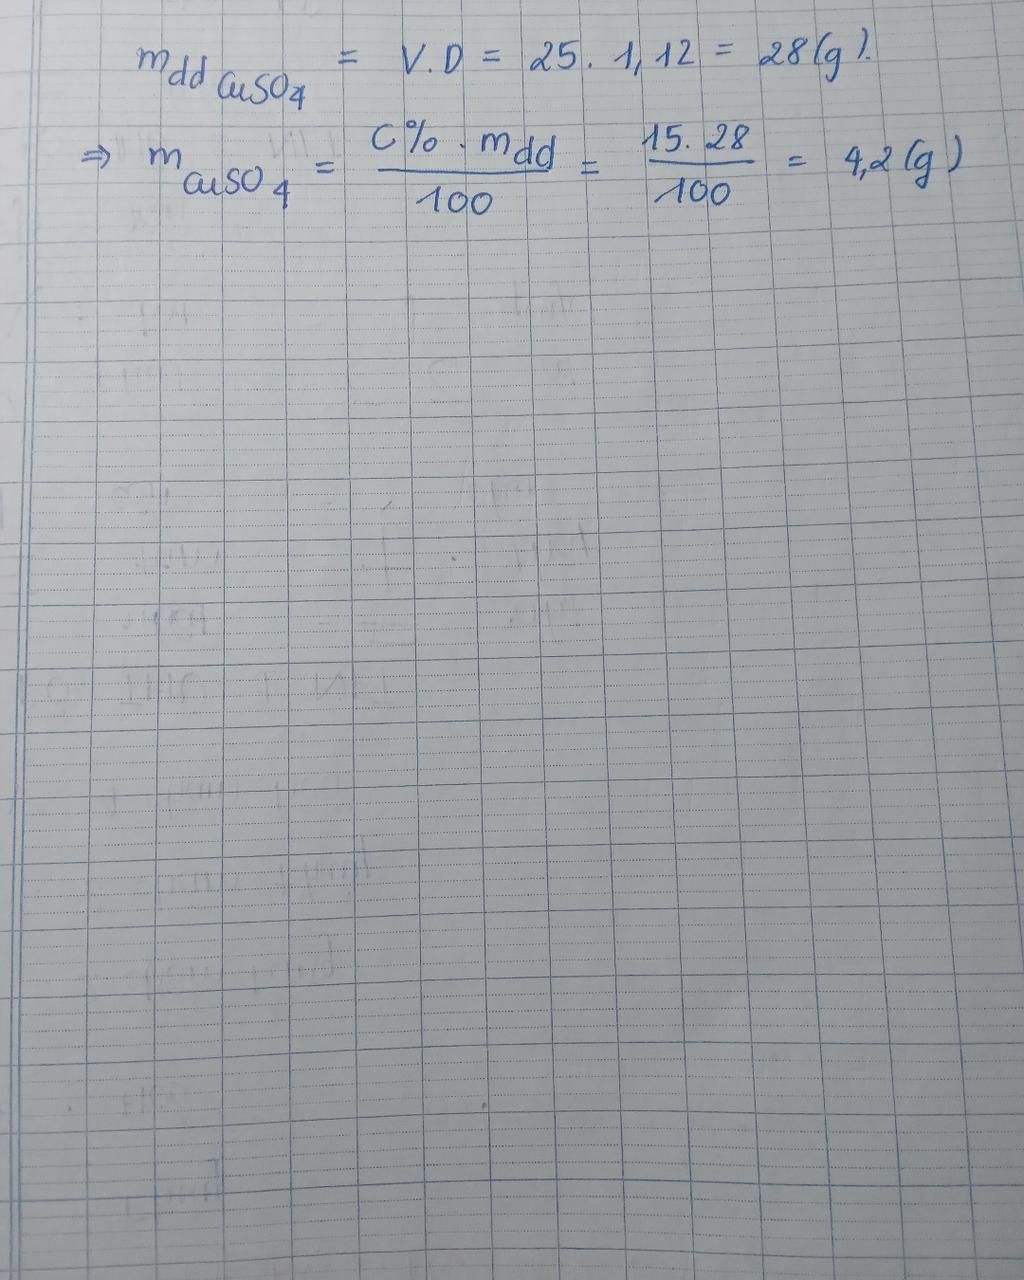 mdd CuSO4 = V.D = 25. 1,12 = 28(g).
⇒ m CuSO4 = C% . mdd / 100 = 15. 28 / 100 = 4,2 (g)